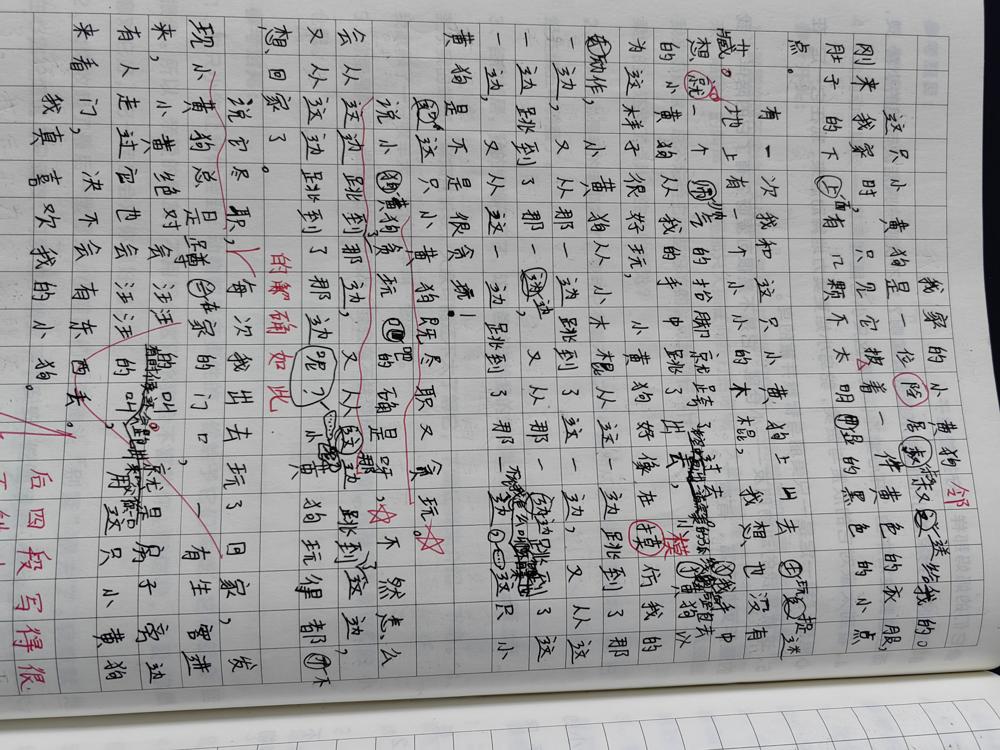 我家的小黄狗 邻
这只小黄狗是一位居叔叔送给我的。
刚来我家时，只见它披着一件黄色的衣服，
肚子的下面有几颗不太明显的黑色的小点
点。
有一次我和这只小黄狗上出去玩捉迷
藏。地上有一个小小的木棍，我想也没有
想就一个的抬脚就跨了过去，我手中
的小黄狗从我的手中跳了出去，小黄狗以
为这样子很好玩，小黄狗好像在模仿我的
动作，小黄狗从小木棍从这一边跳到了那
一边，又从那一边跳到了这一边，又从这
一边跳到了那一边，又从那一边跳到了这
一边，又从这一边跳到了那一边这只小
黄狗是不是很贪玩！
这只小黄狗既尽职又贪玩。
说小黄狗贪玩吧的确是呀，不然怎么
会从这边跳到那边，又从那边跳到了这边，
又从这边跳到了那边呢？小黄狗玩得都不
想回家了。 的确如此
说它尽职，每次我出去玩了回家，发
现小黄狗总是蹲在家的门口，一有生客进
来，小黄绝对会汪汪的叫。就是房子旁边
有人走过它也会汪汪的叫，用这只小黄狗
来看门，决不会有东西丢。
我真喜欢我的小狗。
后四段写得很